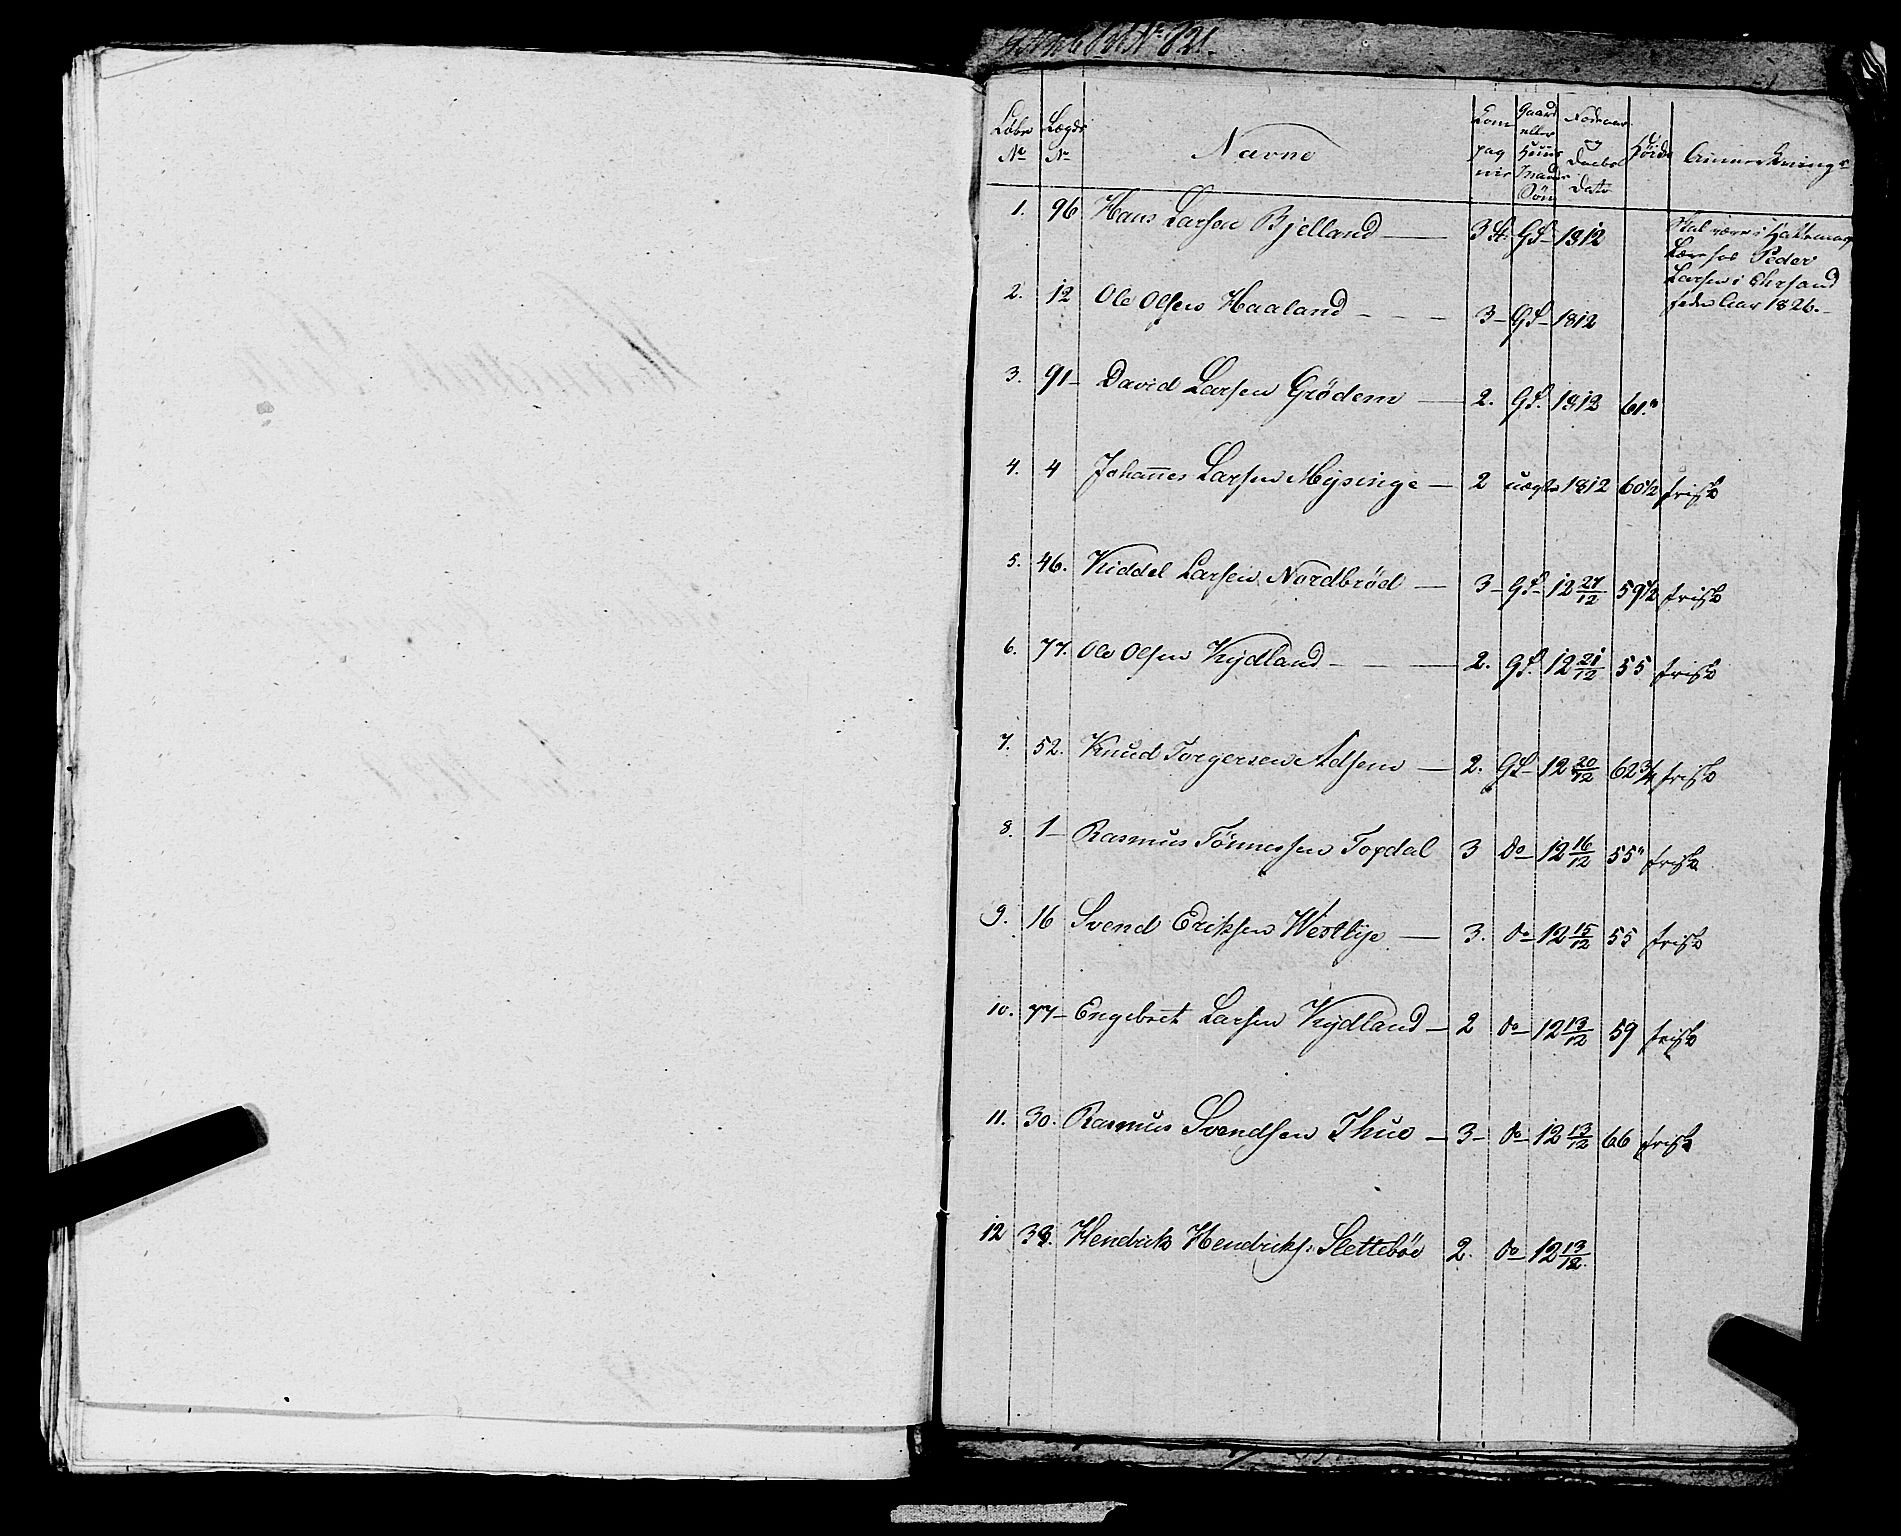 No 821.
Löbe No Lægds No Navne Com pag nie Gaard eller Huus mands Sön Födeaar og Daabs Dato Höide Anmerkninger
1. 96 Hans Larsen Bjelland — 3 GS- 1812 Skal være i
Lære hos Peder
Larsen i Chrsand
siden Aar 1826.-
2. 12 Ole Olsen Haaland - - - 3- GS- 1812
3. 91- David Larsen Grödem — 2. GS. 1812 61."
4. 4 Johannes Larsen Mysinge — 2 uægte 1812 60 1/2 frisk
5. 46. Kiddel Larsen Nordbröd — 3- GS- 12 27/12 59 1/2 frisk
6. 77. Ole Olsen Kydland - — 2. GS. 12 21/12 55 frisk
7. 52. Knud Torgersen Adsem — 2. GS- 12 20/12 62 3/4 frisk
8. 1- Rasmus Tönnessen Topdal 3 Do- 12 16/12 55" frisk
9. 16 Svend Eriksen Westlye — 3. Do- 12 15/12 55 frisk
10. 77- Engebret Larsen Kydland - 2 Do- 12 13/12 59 frisk
11. 30. Rasmus Svendsen Thue - 3- Do- 12 13/12 66 frisk
12 33. Hendrik Hendriks: Sletteböe 2. Do- 12 13/12.